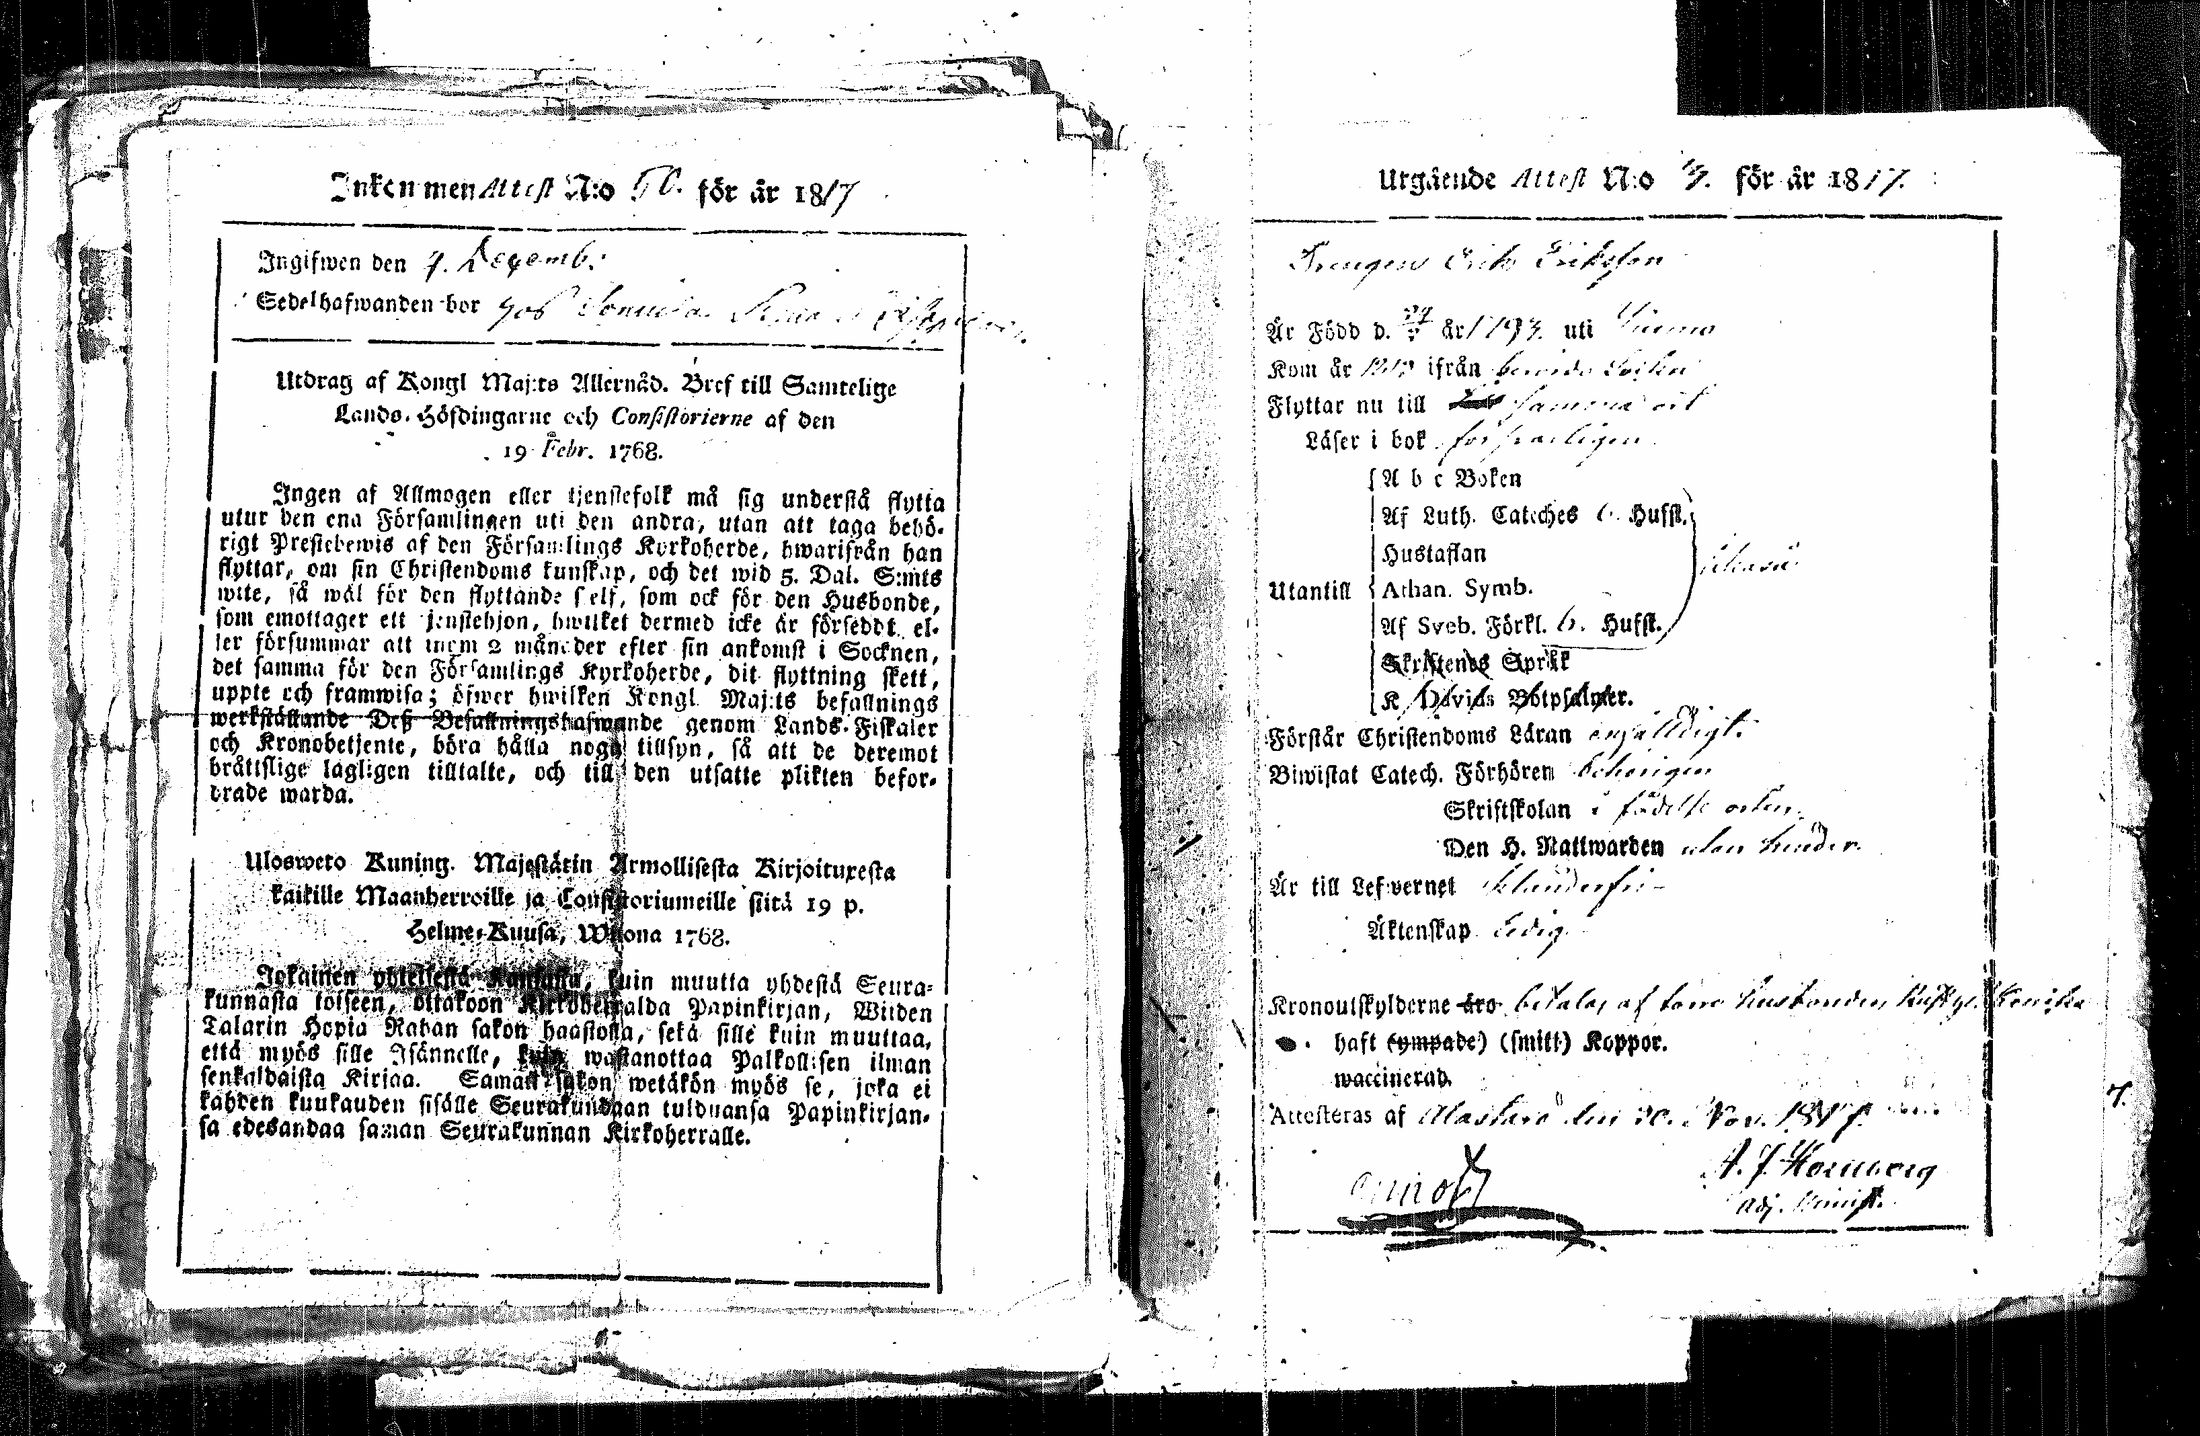 Inkommen Attest N:o 50. för år 1817
Ingifwen den 7. Decemb:
Sedelhafwanden bor hos
Utdrag af Kongl Maj:ts Allernåd. Bref till Samtelige
Lands-Höfdingarne och Consistorierne af den
19 Febr. 1768.
Ingen af Allmogen eller tjenstefolk må sig understå flytta
utur den ena Församlingen uti den andra, utan att taga behö-
rigt Prestebewis af den Församlings Kyrkoherde, hwarifrån han
flyttar, om sin Christendoms kunskap, och det wid 5. Dal. S:mts
wite, så wäl för den flyttande self, som ock för den Husbonde,
som emottager ett tjenstehjon, hwilket dermed icke är förseddt, el-
ler försummar att inom 2 månader efter sin ankomst i Socknen,
det samma för den Församlings Kyrkoherde, dit flyttning skett,
uppte och framwisa; öfwer hwilken Kongl. Maj:ts befallnings
werkställande Deß Befallningshafwande genom Lands-Fiskaler
och Kronobetjente, böra hålla noga tillsyn, så att de deremot
bråttslige lagligen tilltalte, och till den utsatte plikten befor-
drade warda.
Ulosweto Kuning. Majestätin Armollisesta Kirjoituxesta
kaikille Maanherroille ja Consistoriumeille siitä 19 p.
Helme-Kuusa, Wuona 1768.
Jokainen yhteisestä Kansasta, kuin muutta yhdestä Seura-
kunnasta toiseen, ottakoon Kirkoherralda Papinkirjan, Wiiden
Talarin Hopia Rahan sakon haastolla, sekä sille kuin muuttaa,
että myös sille Isännelle, kuin wastanottaa Palkollisen ilman
senkaldaista Kirjaa. Saman sakon wetäkön myös se, joka ei
kahden kuukauden sisälle Seurakundaan tulduansa Papinkirjan-
sa edesandaa saman Seurakunnan Kirkoherralle.
Utgående Attest N:o 3. för år 1817.
Drengen Erik Eriksson
Är Född d. 27 år 1793. uti
Kom år ifrån Socken
Flyttar nu till samma ort
Läser i bok försvarligen
A b c Boken
Af Luth. Cateches 6. Hufst.
Hustaflan
Utantill Athan. Symb.
Af Sveb. Förkl. 6. Hufst.
Skriftenes Språk
K. Davids Botpsalmer.
Förstår Christendoms Läran enfalldigt.
Biwistat Catech. Förhören behörigen
Skriftskolan i födelse orten.
Den H. Nattwarden utan hinder.
Är till Lefwernet klanderfri
Äktenskap Ledig
Kronoutskylderne äro betalas af husbonden
haft (ympade) (smitt) Koppor.
waccinerad.
Attesteras af Alastaro den 20. Nov. 1817.
Adj. Minist.
7.